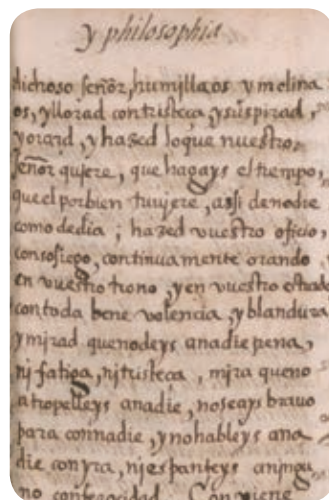 y philosophia
dichoso señor, humillaos y molina
os, yllorad contristeça, ysuspirad,
yorad, y hazed loque nuestro,
señor quiere, que hagays el tiempo,
que el porbien tuujere, assi denoche
como dedia; hazed vuestro oficio,
consosiego, continuamente orando,
en vuestro trono, yen vuestro estrado
contoda bene volencia, yblandura
ymirad quenodeys anadie pena,
nj fatiga, nj tristeça, mjra queno
atropelleys anadie, noseays brauo
para connadie, ynohableys ana
die con yra, njespanteys anjngu
no conferocidad. Conviene